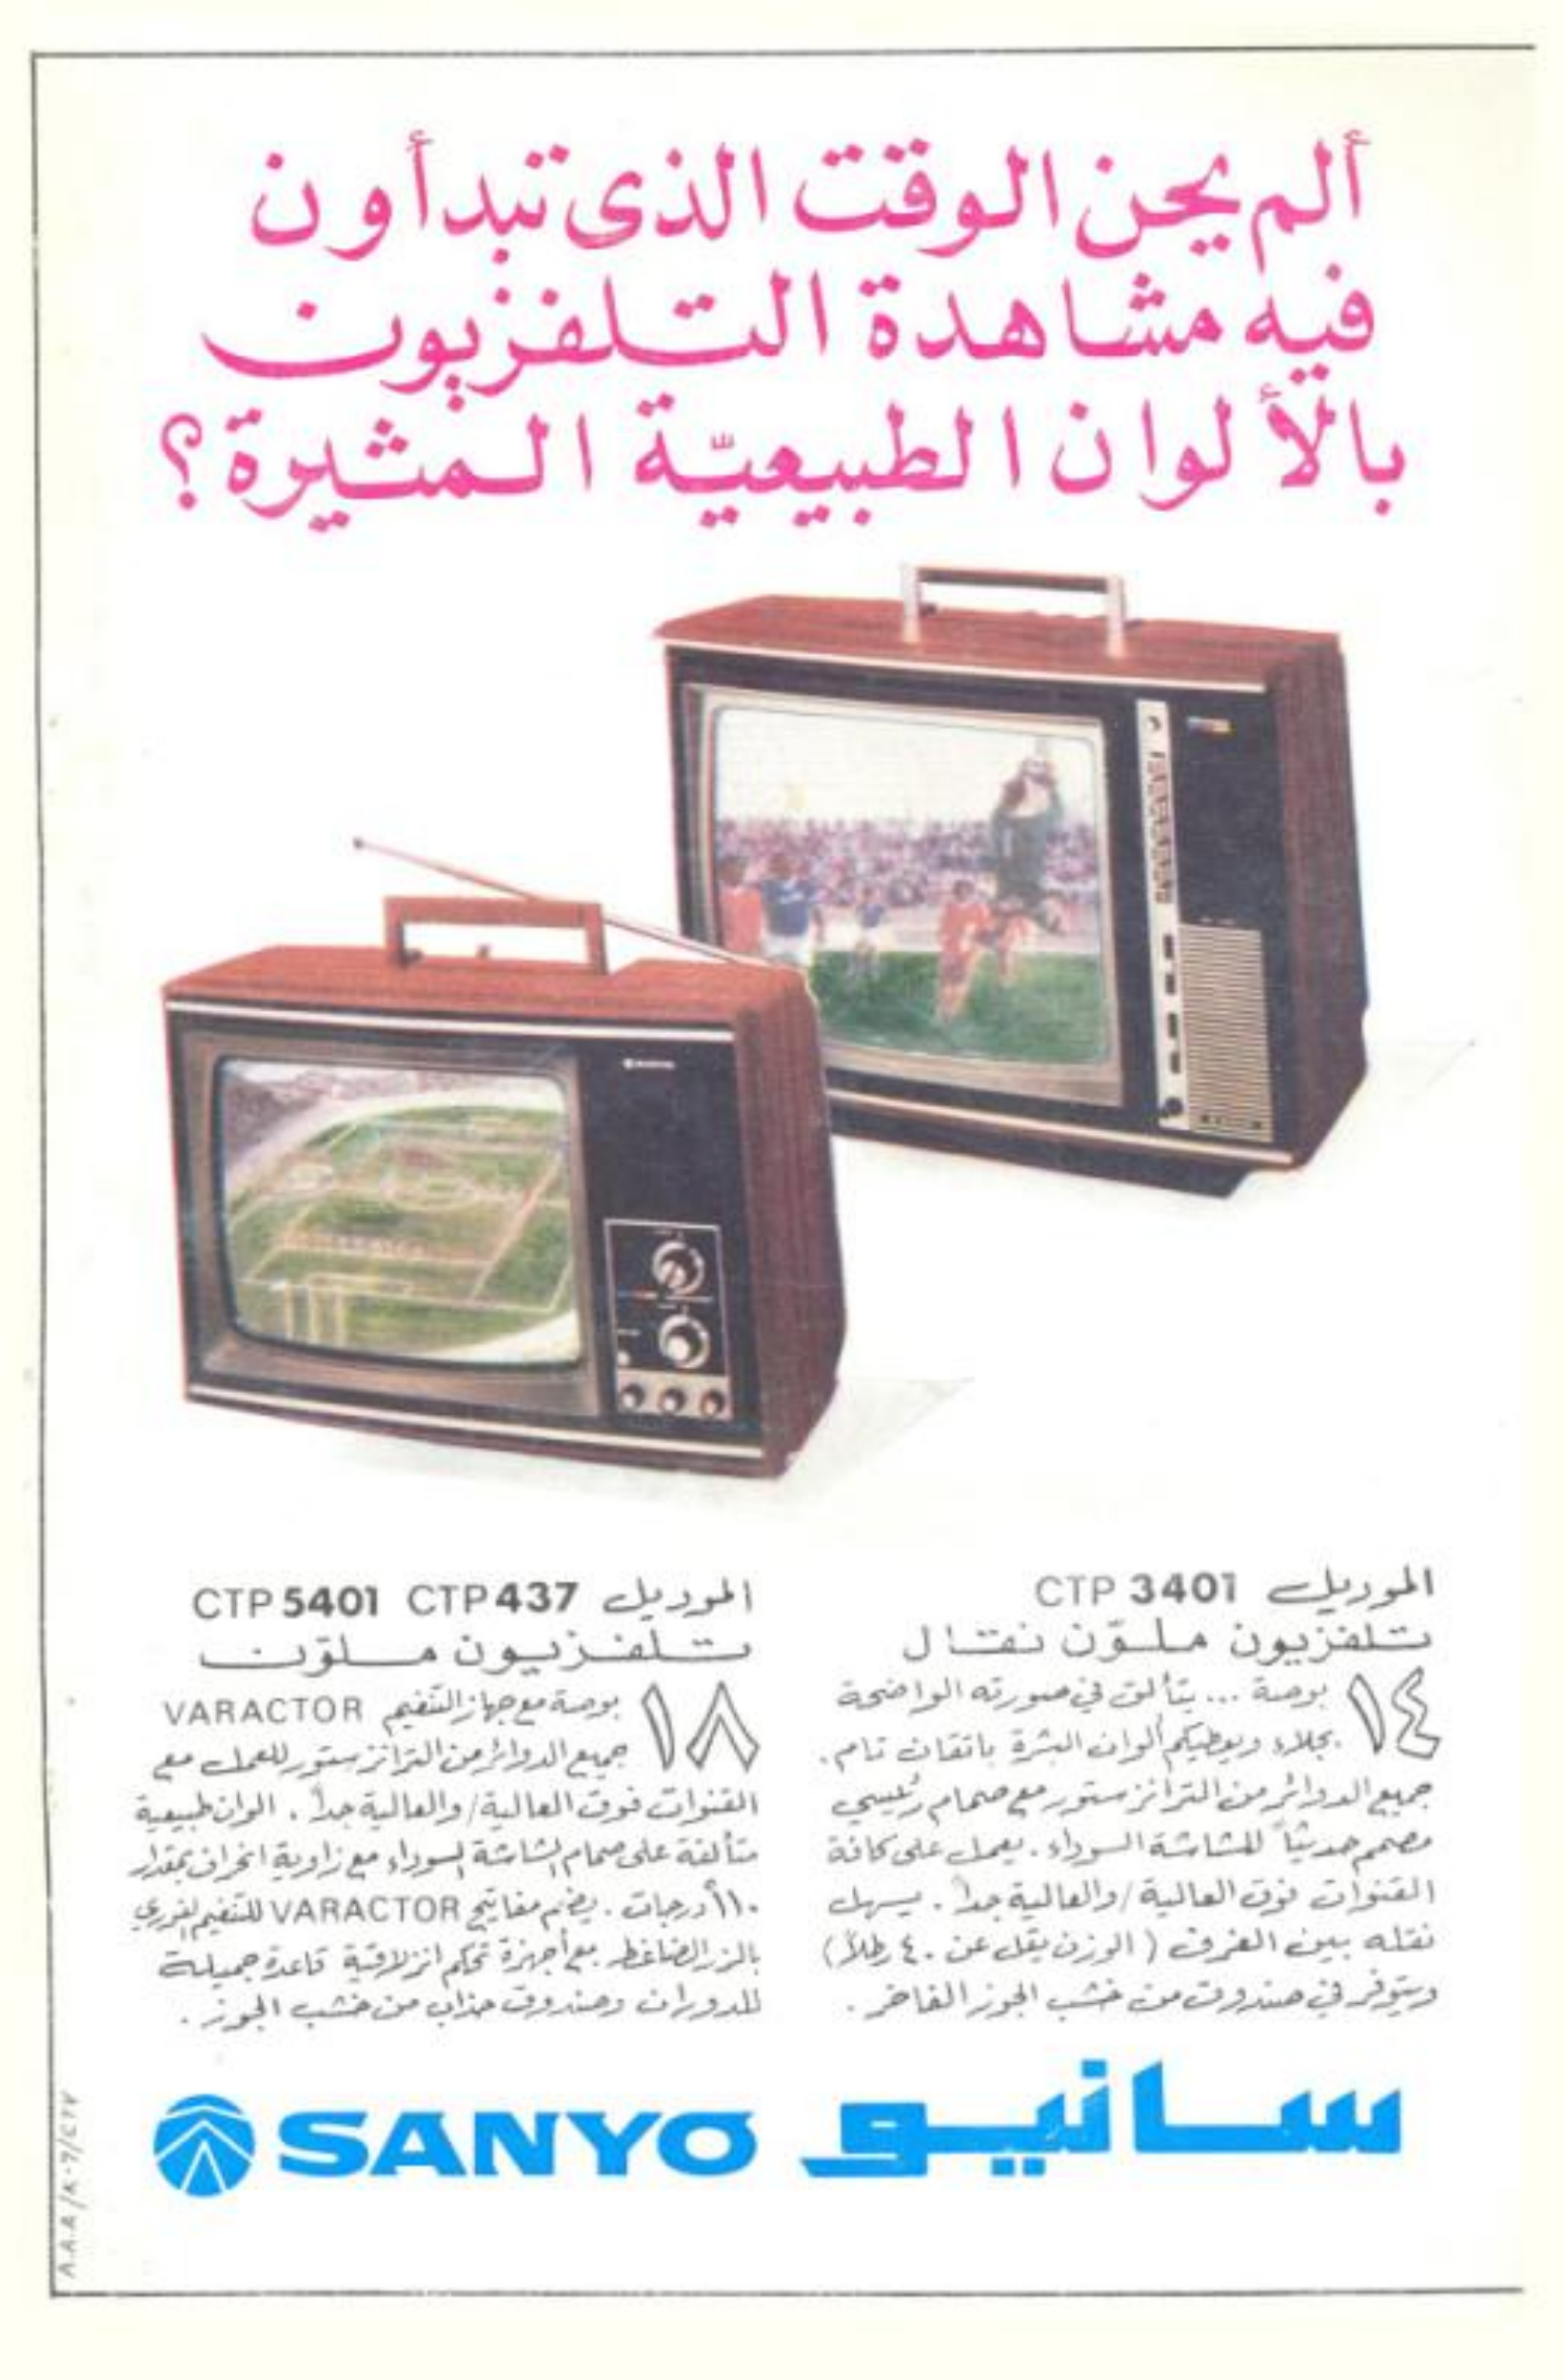 ألم يحن الوقت الذى تبدأون
فيه مشاهدة التلفزيون
بالألوان الطبيعيّة المثيرة؟
SANYO
الموديل CTP 3401
تلفزيون ملوّن نقال
١٤ بوصة ... يتألق في صورته الواضحة
بجلاء ويعطيكم ألوان البشرة باتقان تام.
جميع الدوائر من الترانزستور مع صمام رئيسي
مصمم حديثاً للشاشة السوداء. يعمل على كافة
القنوات فوق العالية/والعالية جداً. يسهل
نقله بين الغرف (الوزن يقل عن ٤٠ رطلاً)
ويتوفر في صندوق من خشب الجوز الفاخر.
الموديل CTP 437 CTP 5401
تلفزيون ملوّن
١٨ بوصة مع جهاز التنغيم VARACTOR
جميع الدوائر من الترانزستور للعمل مع
القنوات فوق العالية/والعالية جداً. الوان طبيعية
متألقة على صمام الشاشة السوداء مع زاوية انحراف بمقدار
١١٠ درجات. يضم مفاتيح VARACTOR للتنغيم الفوري
بالزر الضاغط. مع أجهزة تحكم انزلاقية قاعدة جميلة
للدوران وصندوق جذاب من خشب الجوز.
سانيو SANYO
A.A.A/K-7/CTV